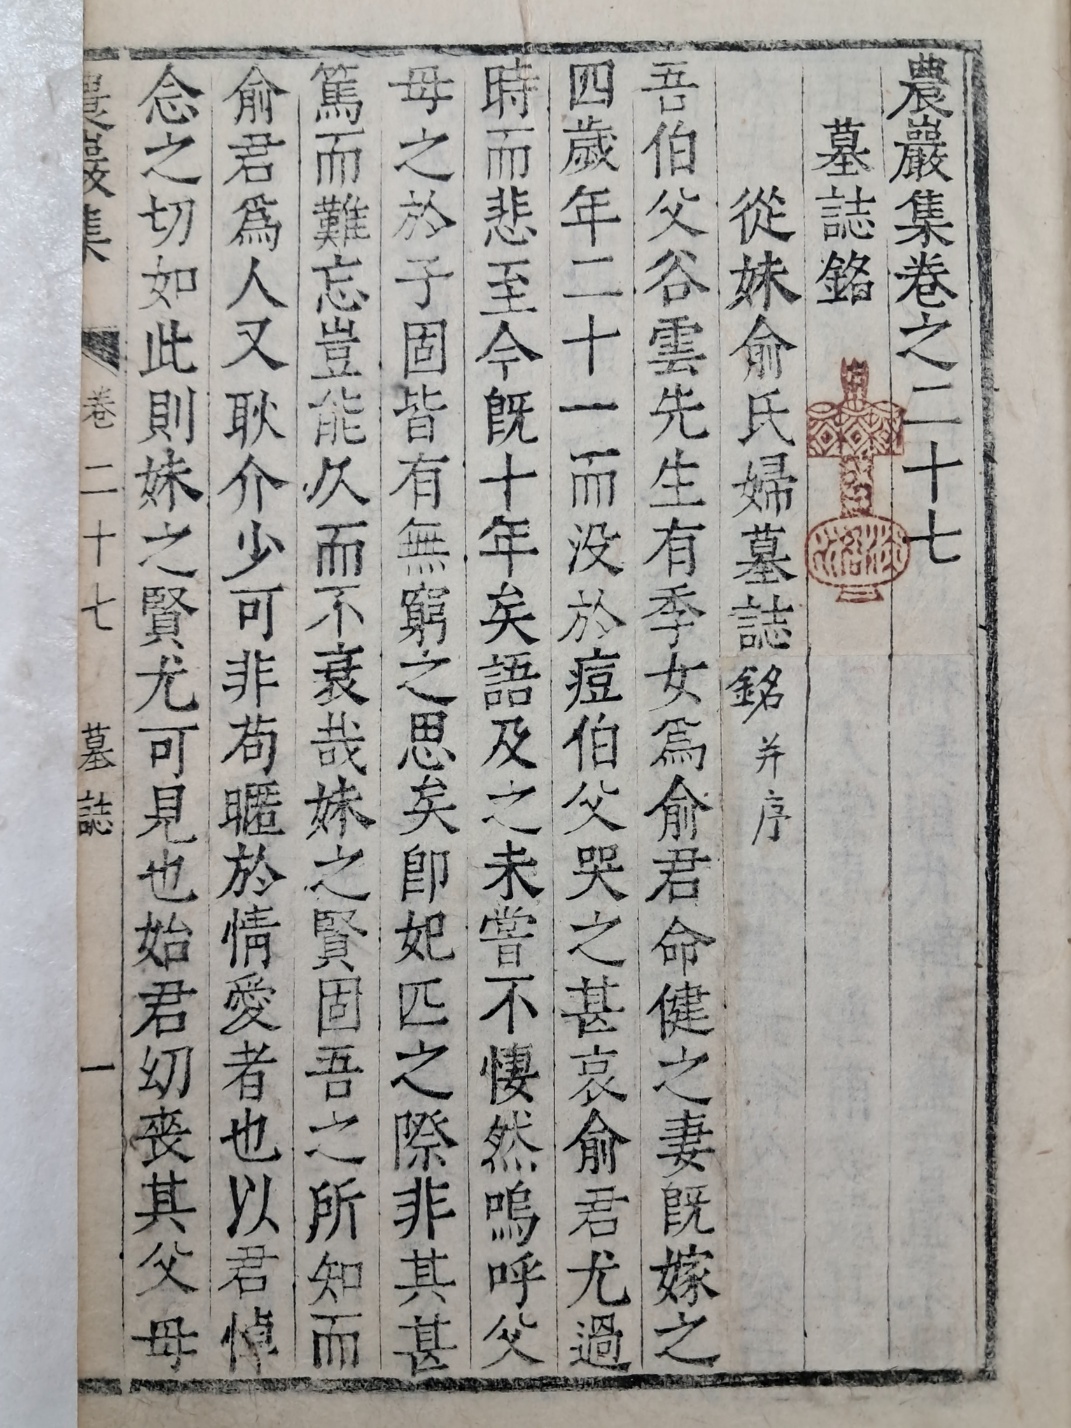 農巖集卷之二十七
墓誌銘
從妹俞氏婦墓誌銘并序
吾伯父谷雲先生有季女爲俞君命健之妻旣嫁之
四歲年二十一而没於痘伯父哭之甚哀俞君尤過
時而悲至今旣十年矣語及之未嘗不悽然嗚呼父
母之於子固皆有無窮之思矣卽妃匹之際非其甚
篤而難忘豈能久而不衰哉妹之賢固吾之所知而
俞君爲人又耿介少可非苟暱於情愛者也以君悼
念之切如此則妹之賢尤可見也始君幼喪其父母
農巖集 卷二十七 墓誌 一